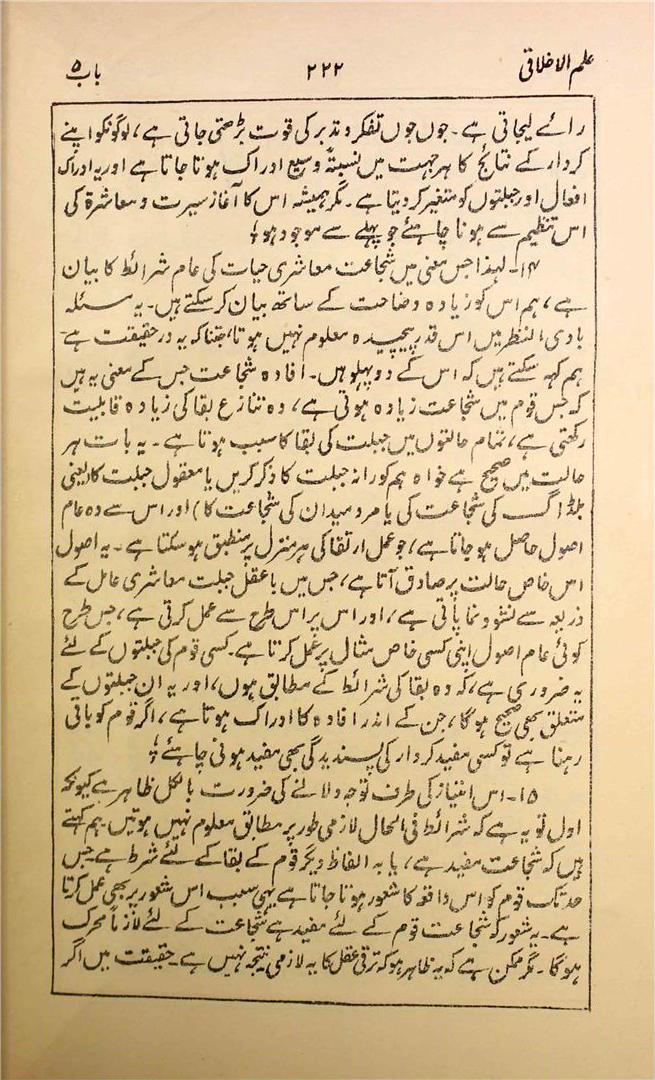 علم الاخلاقی
۲۲۲
باب ۵
رائے لیجاتی ہے۔ جوں جوں تفکر و تدبر کی قوت بڑھتی جاتی ہے، لوگونکو اپنے
کردار کے نتائج کا ہر جہت میں نسبتہً وسیع ادراک ہوتا جاتا ہے اور یہ ادراک
افعال اور جبلتوں کو متغیر کر دیتا ہے۔ مگر ہمیشہ اس کا آغاز سیرت و معاشرۃ کی
اس تنظیم سے ہونا چاہئے جو پہلے سے موجود ہو؛
۱۴۔ لہذا جس معنی میں شجاعت معاشری حیات کی عام شرائط کا بیان
ہے، ہم اس کو زیادہ وضاحت کے ساتھ بیان کر سکتے ہیں۔ یہ مسئلہ
بادی النظر میں اس قدر پیچیدہ معلوم نہیں ہوتا، جتنا کہ یہ در حقیقت ہے
ہم کہہ سکتے ہیں کہ اس کے دو پہلو ہیں۔ افادہ شجاعت جس کے معنی یہ ہیں
کہ جس قوم میں شجاعت زیادہ ہوتی ہے، وہ تنازع بقا کی زیادہ قابلیت
رکھتی ہے، تمام حالتوں میں جبلت کی بقا کا سبب ہوتا ہے۔ یہ بات ہر
حالت میں صحیح ہے خواہ ہم کورانہ جبلت کا ذکر کریں یا معقول جبلت کا (یعنی
بلڈاگ کی شجاعت کی یا مرد میدان کی شجاعت کا) اور اس سے وہ عام
اصول حاصل ہو جاتا ہے، جو عمل ارتقا کی ہر منزل پر منطبق ہو سکتا ہے۔ یہ اصول
اس خاص حالت پر صادق آتا ہے، جس میں باعقل جبلت معاشری عامل کے
ذریعہ سے نشو و نما پاتی ہے، اور اس پر اس طرح سے عمل کرتی ہے، جس طرح
کوئی عام اصول اپنی کسی خاص مثال پر عمل کرتا ہے۔ کسی قوم کی جبلتوں کے لئے
یہ ضروری ہے، کہ وہ بقا کی شرائط کے مطابق ہوں، اور یہ ان جبلتوں کے
متعلق بھی صحیح ہو گا، جن کے اندر افادہ کا ادراک ہوتا ہے، اگر قوم کو باقی
رہنا ہے تو کسی مفید کردار کی پسندیدگی بھی مفید ہونی چاہئے؛
۱۵۔ اس امتیاز کی طرف توجہ دلانے کی ضرورت بالکل ظاہر ہے کیونکہ
اول تو یہ ہے کہ شرائط فی الحال لازمی طور پر مطابق معلوم نہیں ہوتیں۔ ہم کہتے
ہیں کہ شجاعت مفید ہے، یا بہ الفاظ دیگر قوم کے بقا کے لئے شرط ہے جس
حد تک قوم کو اس واقعہ کا شعور ہوتا جاتا ہے یہی سبب اس شعور پر بھی عمل کرتا
ہے۔ یہ شعور کہ شجاعت قوم کے لئے مفید ہے شجاعت کے لئے لازماً محرک
ہو گا۔ مگر ممکن ہے کہ یہ ظاہر ہو کہ ترقی عقل کا یہ لازمی نتیجہ نہیں ہے۔ حقیقت میں اگر